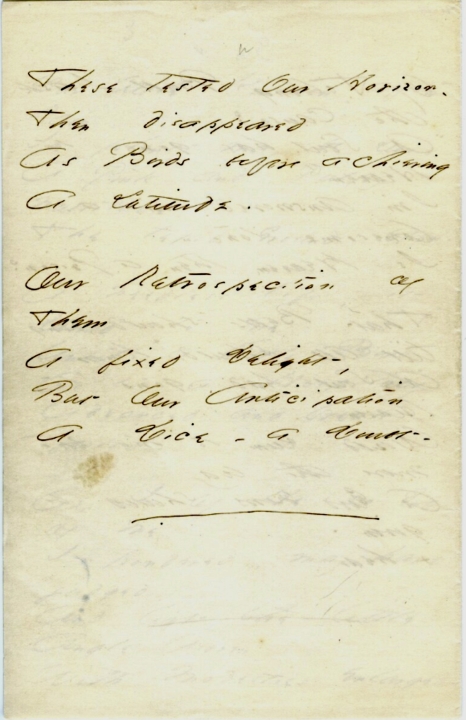 These tested Our Horizon -
Then disappeared
As Birds before achieving
A Latitude.
Our Retrospection of
Them
A fixed Delight,
But Our Anticipation
A Dice - a Doubt -